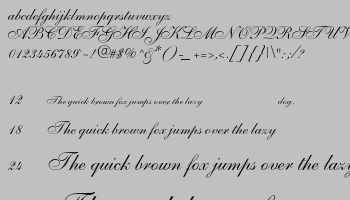 abcdefghijklmnopqrstuvwxyz
ABCDEFGHIJKLMNOPQRSTUV
0123456789~!@#$%^&*()-_+=>,<.[]{}|\":;/?
12 The quick brown fox jumps over the lazy dog.
18 The quick brown fox jumps over the lazy
24 The quick brown fox jumps over the lazy